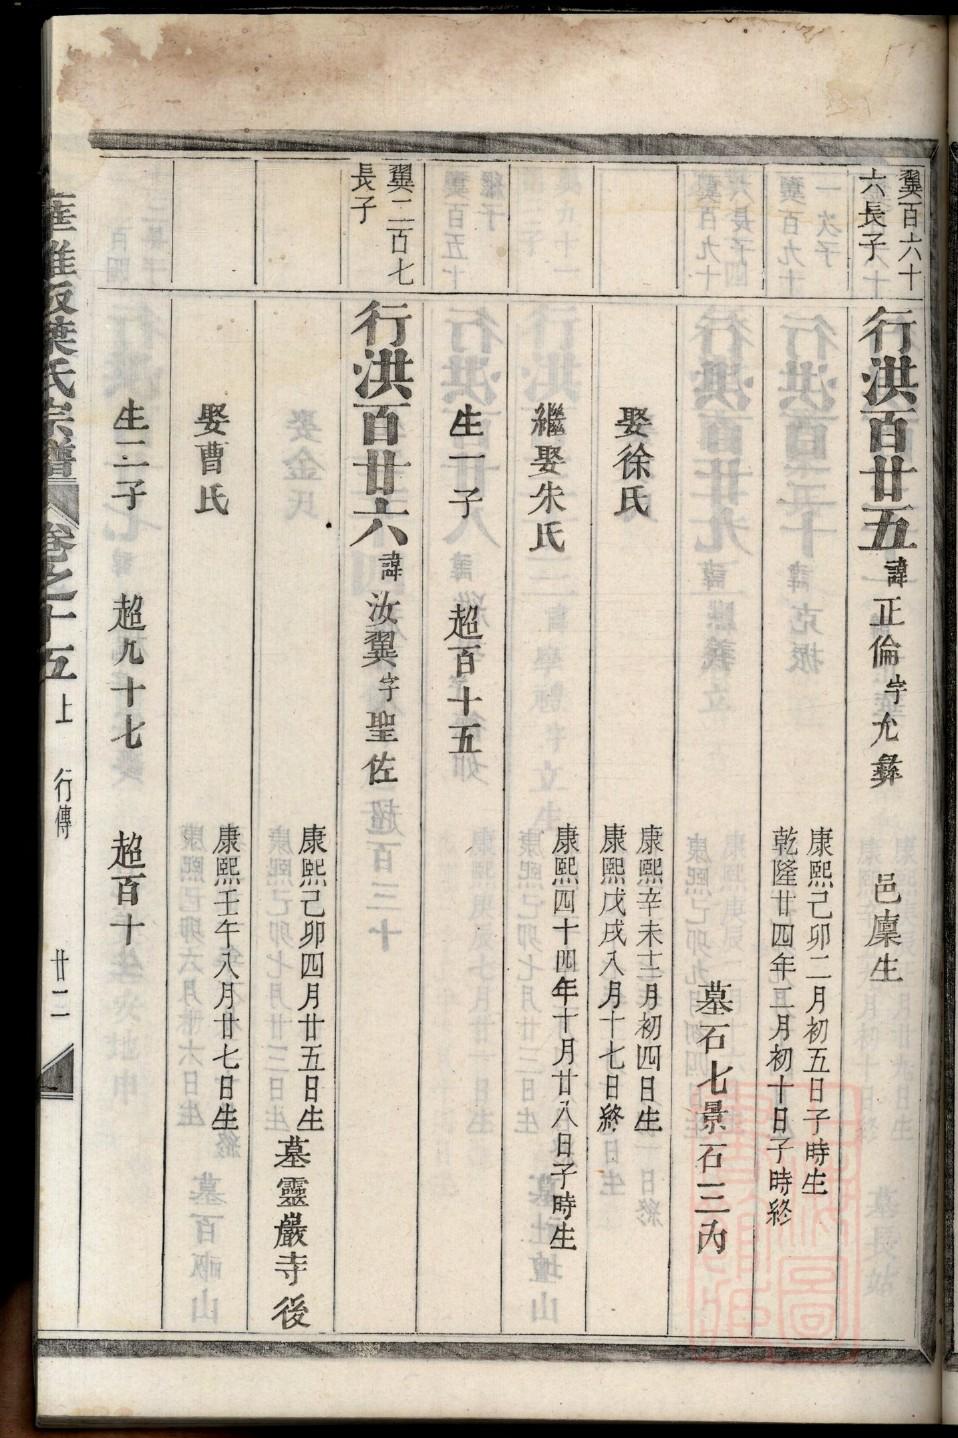 翼百六十
六長子
行洪百廿五諱正倫字允彝
邑廩生
康熙己卯二月初五日子時生
乾隆廿四年五月初十日子時終
墓石七景石三內
娶徐氏
康熙辛未十二月初四日生
康熙戊戌八月十七日終
繼娶朱氏
康熙四十四年十月廿八日子時生
生一子
超百十五
翼二百七
長子
行洪百廿六諱汝翼字聖佐
康熙己卯四月廿五日生
墓靈巖寺後
娶曹氏
康熙壬午八月廿七日生
生二子
超九十七
超百十
葉氏宗譜
卷之十五
上
行傳
廿二